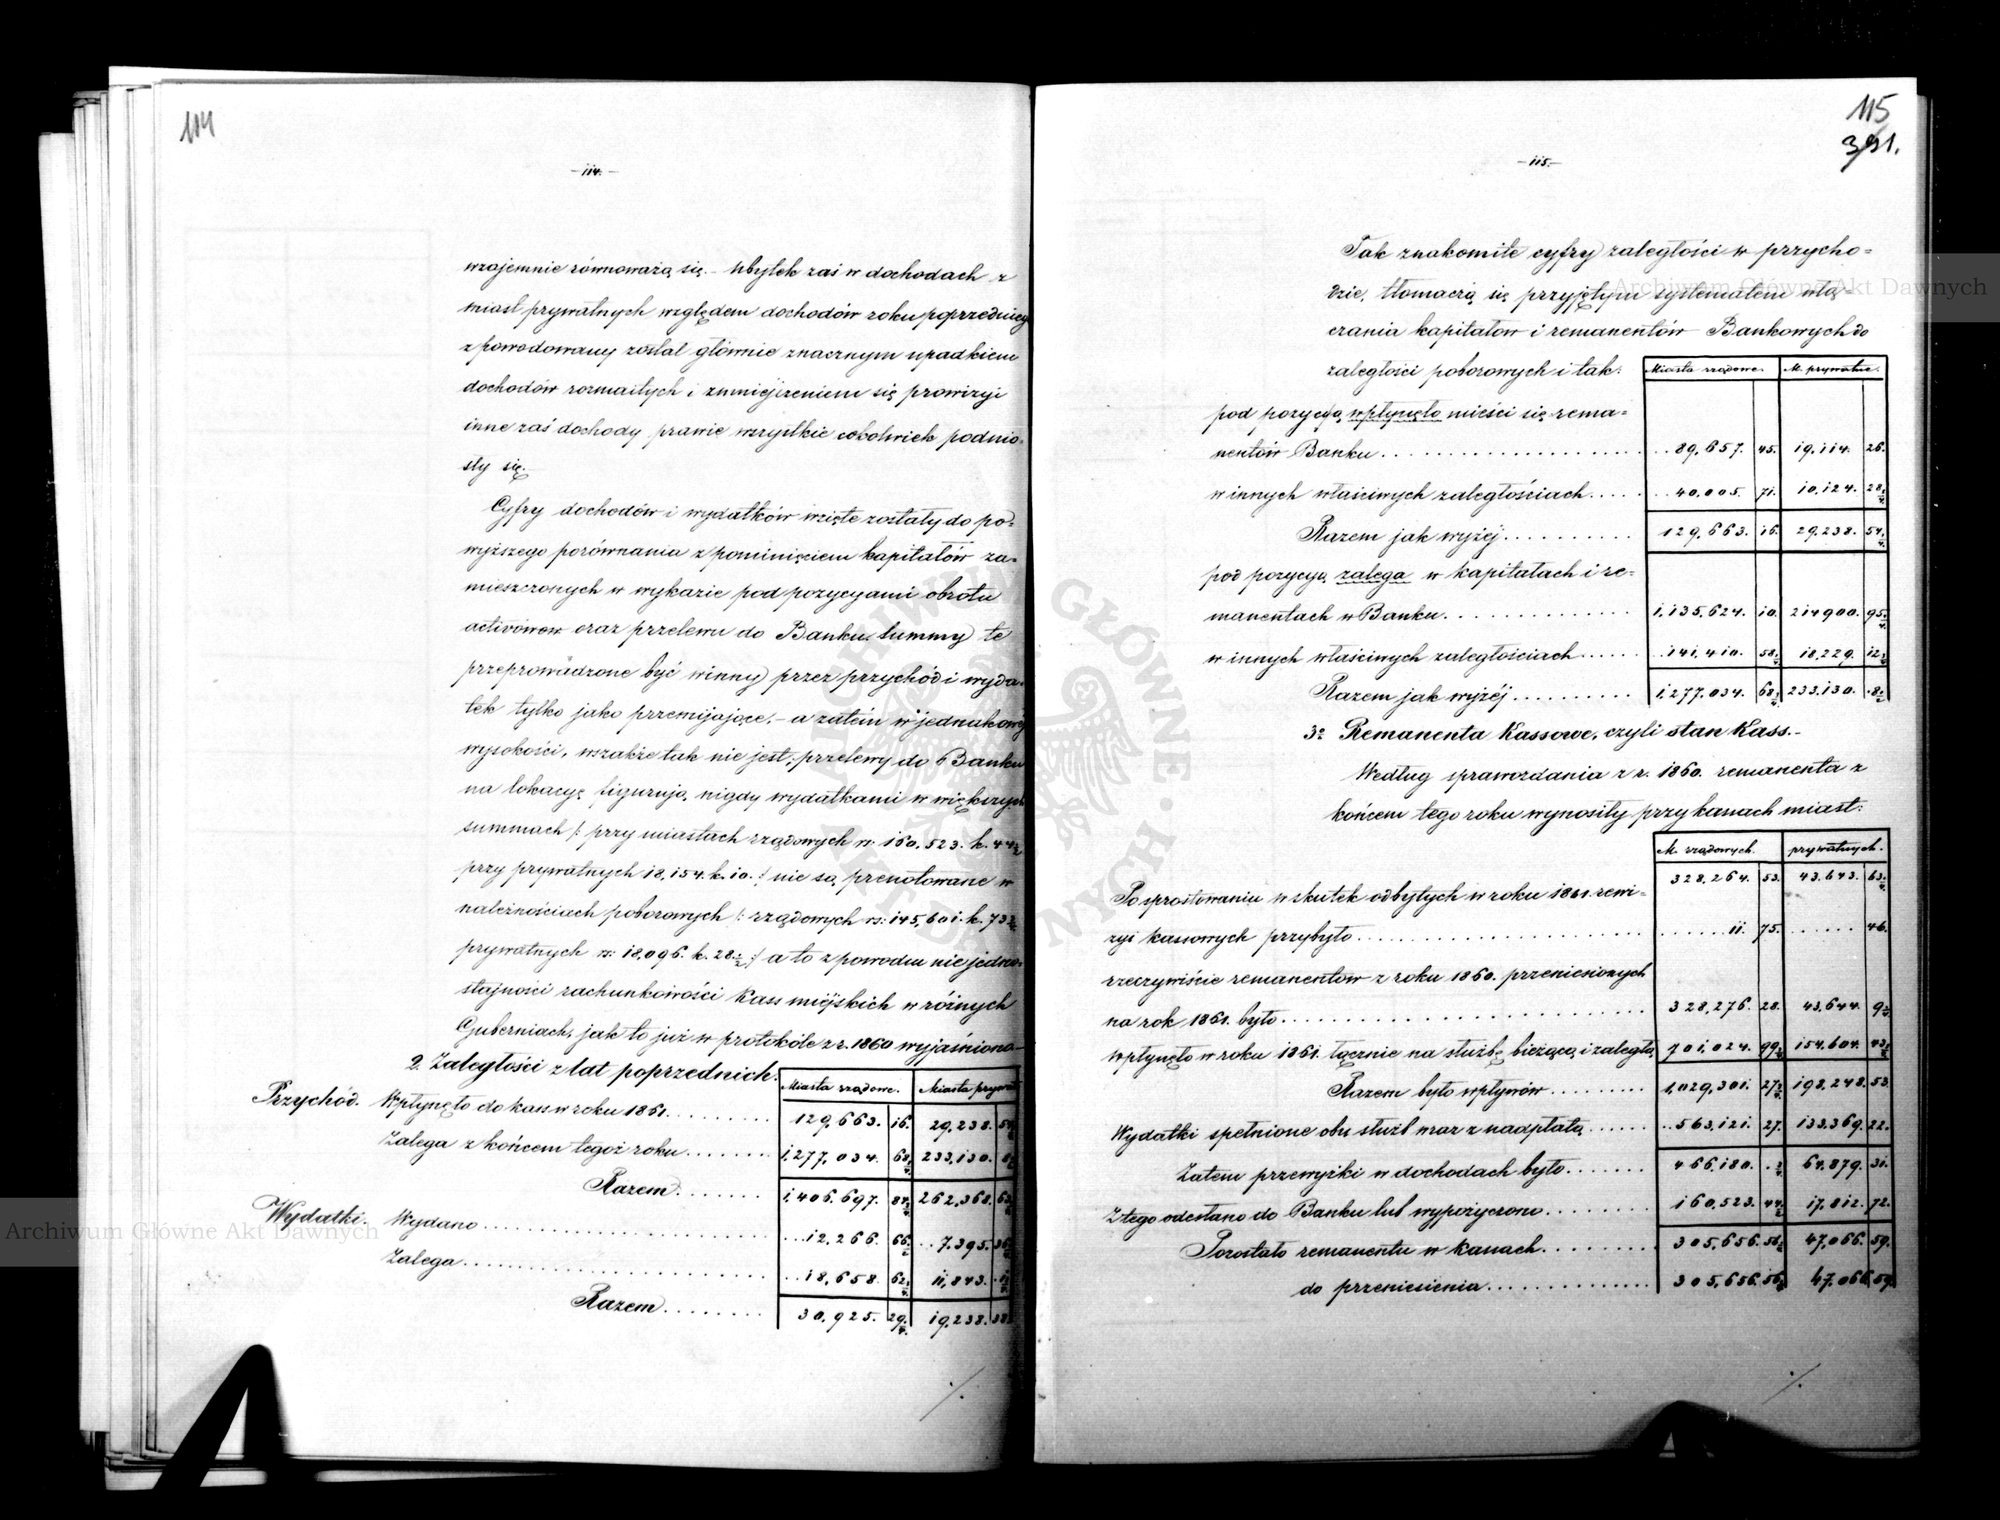 114
-114.-
wzajemnie równoważą się.- ubytek zaś w dochodach z
miast prywatnych względem dochodów roku poprzedniego
spowodowany został głównie znacznym upadkiem
dochodów rozmaitych i zmniejszeniem się prowizyi
inne zaś dochody prawie wszystkie cokolwiek podnio-
sły się.
Cyfry dochodów i wydatków wzięte zostały do po-
wyższego porównania z pominięciem kapitałów za-
mieszczonych w wykazie pod pozycyami obrotu
activówow oraz przelewu do Banku. Summy te
przeprowadzone być winny przez przychód i wyda-
tek tylko jako przemijające,- a zatém w jednakowej
wysokości, wszakże tak nie jest; przelewy do Banku
na lokacyę figurują nigdy wydatkami w większych
summach /: przy miastach rządowych rs: 160,523. k. 44½
przy prywatnych 18,154. k. 10. :/ nie są prenotowane w
należnościach poborowych /: rządowych rs: 145,601. k. 73½
prywatnych rs: 18,096. k. 28½ :/ a to z powodu niejedno-
stajności rachunkowości Kass miejskich w różnych
Guberniach, jak to już w protokóle z r. 1860 wyjaśniono.-
2. Zaległości z lat poprzednich.
Miasta rządowe. Miasta prywat
Przychód. Wpłynęło do kass w roku 1861......... 129,663. 16. 29,238. 54
Zalega z końcem tegoż roku........ 1,277,034. 68 233,130. 8
Razem........ 1,406,697. 84 262,368. 63
Wydatki. Wydano........ 12,266. 66 7,395. 36
Zalega........ 18,658. 62 11,843.
Razem........ 30,925. 29 19,238. 38
115
391.
-115.-
Tak znakomite cyfry zaległości w przycho-
dzie, tłomaczą się przyjętym systematem włą-
czania kapitałów i remanentów Bankowych do
zaległości poborowych i tak:
Miasta rządowe. M. prywatne.
pod pozycyą wpłynęło mieści się rema-
nentów Banku........ 89,657. 45. 19,114. 26.
w innych właściwych zaległościach..... 40,005. 71. 10,124. 28½
Razem jak wyżéj.......... 129,663. 16. 29,238. 54
pod pozycyą zalega w kapitałach i re-
manentach w Banku............ 1,135,624. 10. 214900. 95
w innych właściwych zaległościach...... 141,410. 58 18,229. 12
Razem jak wyżéj.......... 1,277,034. 68 233,130. 8
3º Remanenta Kassowe, czyli stan Kass.-
Według sprawozdania z r. 1860. remanenta z
końcem tego roku wynosiły przy kassach miast:
M. rządowych. prywatnych.
328,264. 53. 43,643. 63
Po sprostowaniu w skutek odbytych w roku 1861. rewi-
zyi kassowych przybyło........ 11. 75. ...... 46.
rzeczywiście remanentów z roku 1860. przeniesionych
na rok 1861. było........ 328,276. 28. 43,644. 9
wpłynęło w roku 1861. łącznie na służbę bieżącą i zaległą 701,024. 99 154,604. 43
Razem było wpływów........ 1,029,301. 27 198,248. 53
Wydatki spełnione obu służb wraz z nadpłatą...... 563,121. 27. 133,369. 22.
Zatem przewyżki w dochodach było........ 466,180. 64,879. 31.
Z tego odesłano do Banku lub wypożyczono........ 160,523. 44 17,812. 72.
Pozostało remanentu w kassach........ 305,656. 56 47,066. 59.
do przeniesienia........ 305,656. 56 47,066. 59.
Archiwum Główne Akt Dawnych
Archiwum Główne Akt Dawnych
ARCHIWUM GŁÓWNE AKT DAWNYCH